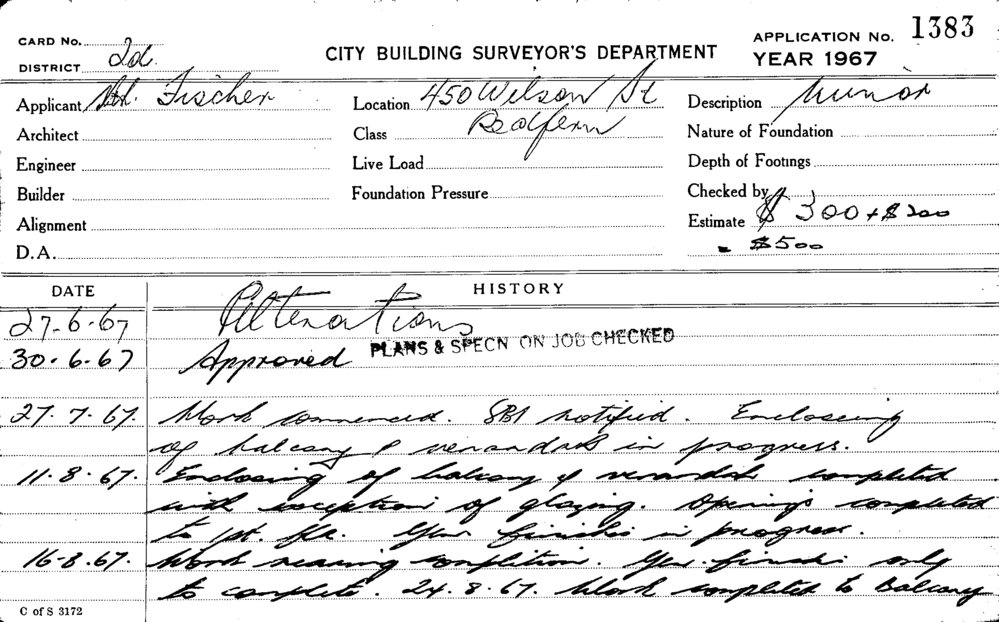 CARD No. 2d. CITY BUILDING SURVEYOR'S DEPARTMENT APPLICATION No. 1383
DISTRICT YEAR 1967
Applicant Fischer Location 450 Wilson St Description Minor
Architect Class Redfern Nature of Foundation
Engineer Live Load Depth of Footings
Builder Foundation Pressure Checked by
Alignment Estimate $300 + $200
D.A. = $500
DATE HISTORY
27-6-67 Alterations
30-6-67 Approved PLANS & SPECN ON JOB CHECKED
27.7.67. Work commenced. SBI notified. Enclosing
of balcony & verandah in progress.
11.8.67. Enclosing of balcony & verandah completed
with exception of glazing. Openings completed
to 1st. flr. Gen finishes in progress.
16-8.67. Work nearing completion. Gen finishes only
to complete. 24.8.67. Work completed to Balcony
C of S 3172